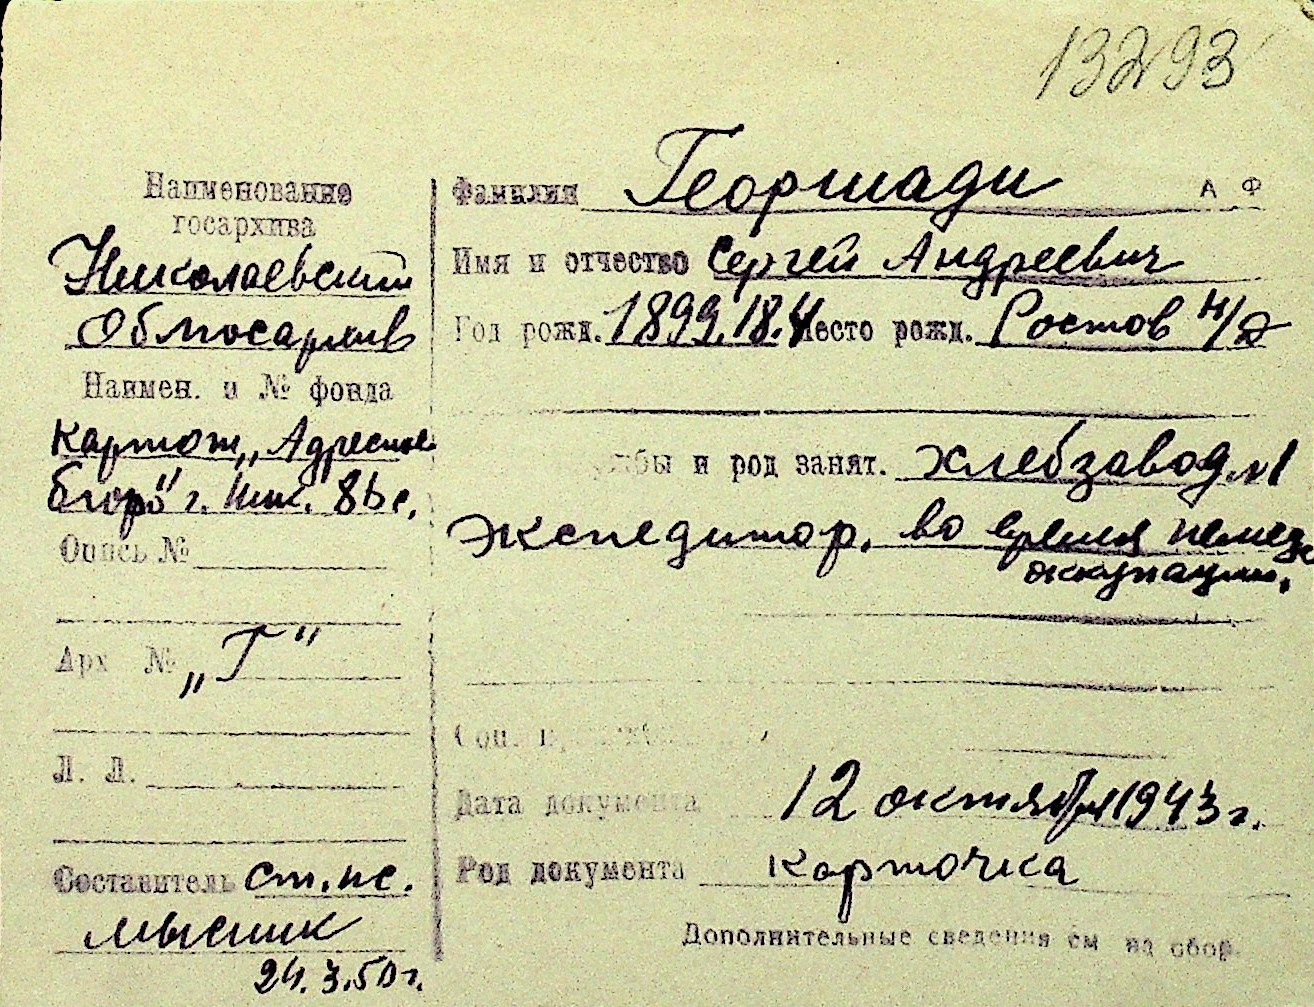 13293
Наименование
госархива
Николаевский
Облгосархив
Наимен. и № фонда
Картот. „Адресное
бюро" г. Ник.
Опись №
Арх № „Г"
Л. Л.
Составитель ст. нс.
Мысник
24.3.50 г.
Фамилия Георгиади А Ф
Имя и отчество Сергей Андреевич
Год рожд. 1899.18.4 Место рожд. Ростов н/Д
жбы и род занят. хлебзавод №1
экспедитор, во время немецк
оккупации,
Соц.
Дата документа 12 октября 1943 г.
Род документа карточка
Дополнительные сведения см на обор.